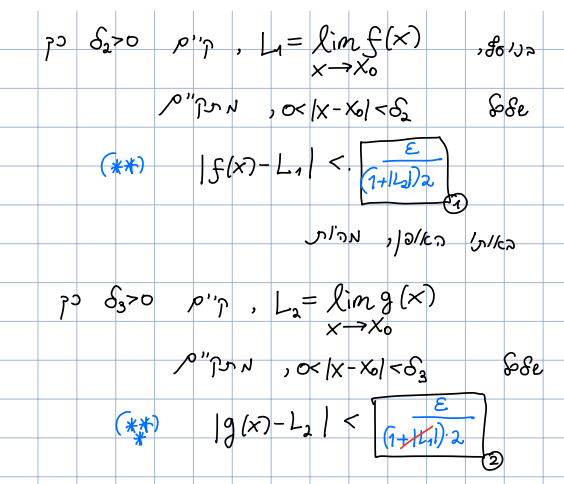 בנוסף, L₁ = lim f(x) , קיים δ₂>0 כך
x→x₀
שלכל 0<|x-x₀|<δ₂ , מתקיים
(**) |f(x)-L₁| < ε/((1+|L₂|)2) ①
באותו האופן, מהיות
L₂ = lim g(x) , קיים δ₃>0 כך
x→x₀
שלכל 0<|x-x₀|<δ₃ , מתקיים
(***) |g(x)-L₂| < ε/((1+|L₁|)·2) ②